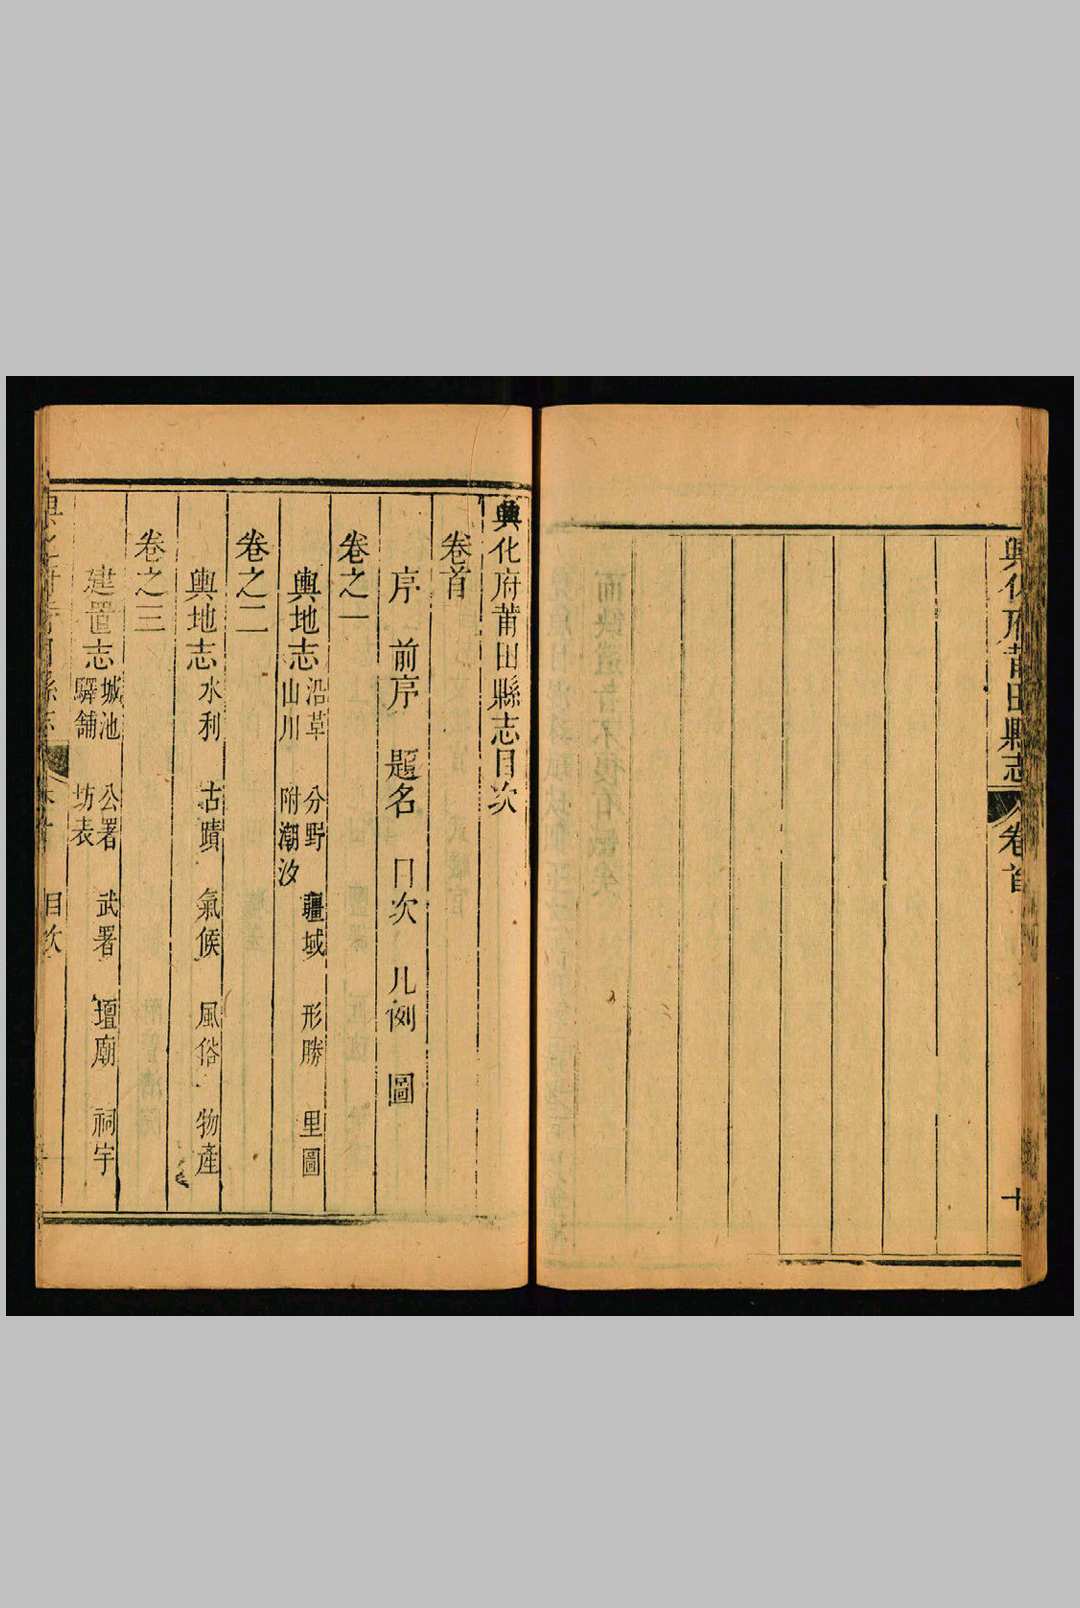 興化府莆田縣志 卷首
十
興化府莆田縣志目次
卷首
序 前序 題名 目次 凡例 圖
卷之一
輿地志 沿革 分野 疆域 形勝 里圖
山川 附潮汐
卷之二
輿地志 水利 古蹟 氣候 風俗 物產
卷之三
建置志 城池 公署 武署 壇廟 祠宇
驛舖 坊表
目次